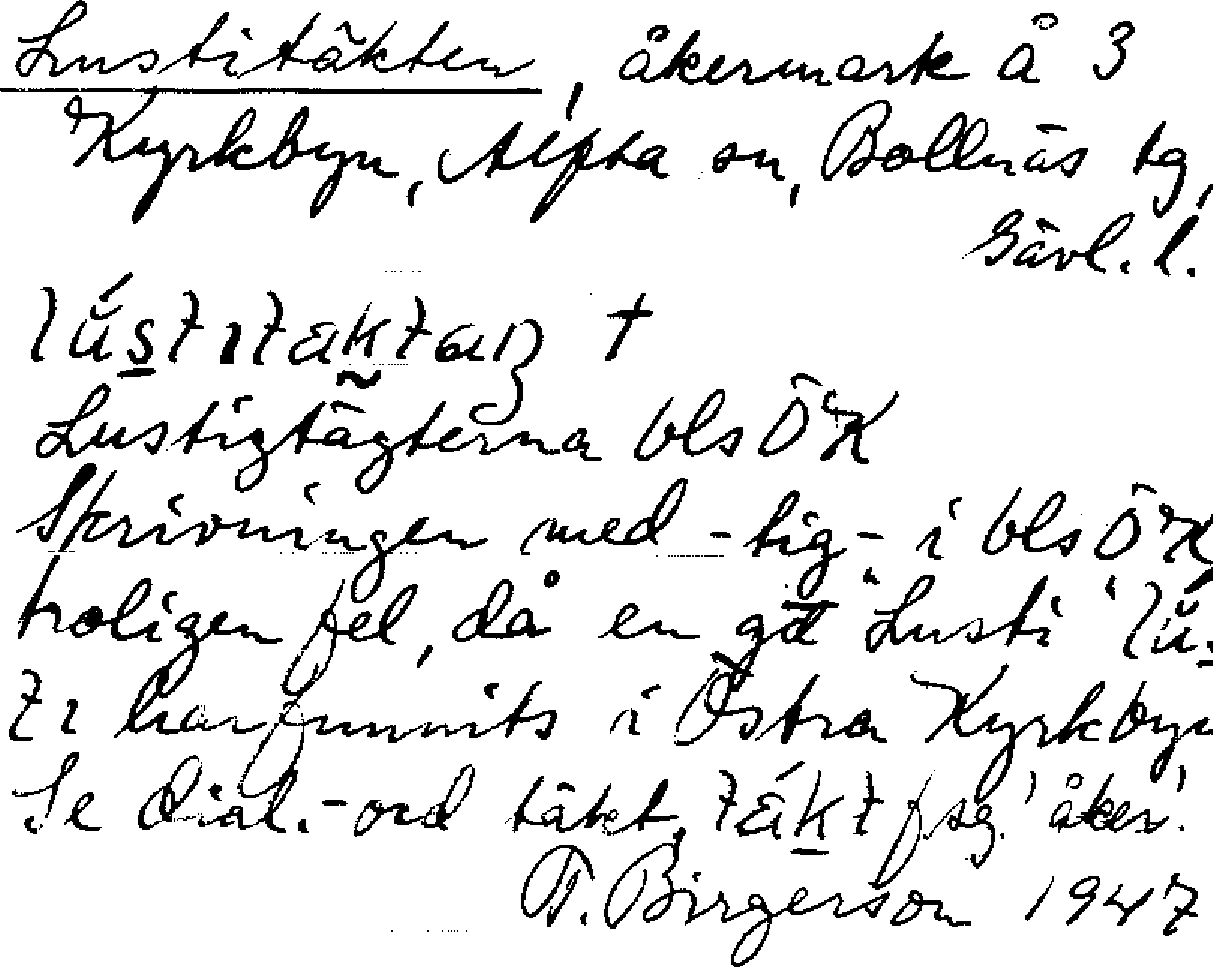 Lustitäkten, åkermark å 3
Kyrkbyn, Alfta sn, Bollnäs tg,
Gävl. l.
Lustigtägterna bls ÖK
Skrivningen med -tig- i bls ÖK,
troligen fel, då en gd "Lusti"
har funnits i Östra Kyrkbyn
Se dial.-ord täkt, f sg. 'åker'.
T. Birgerson 1947